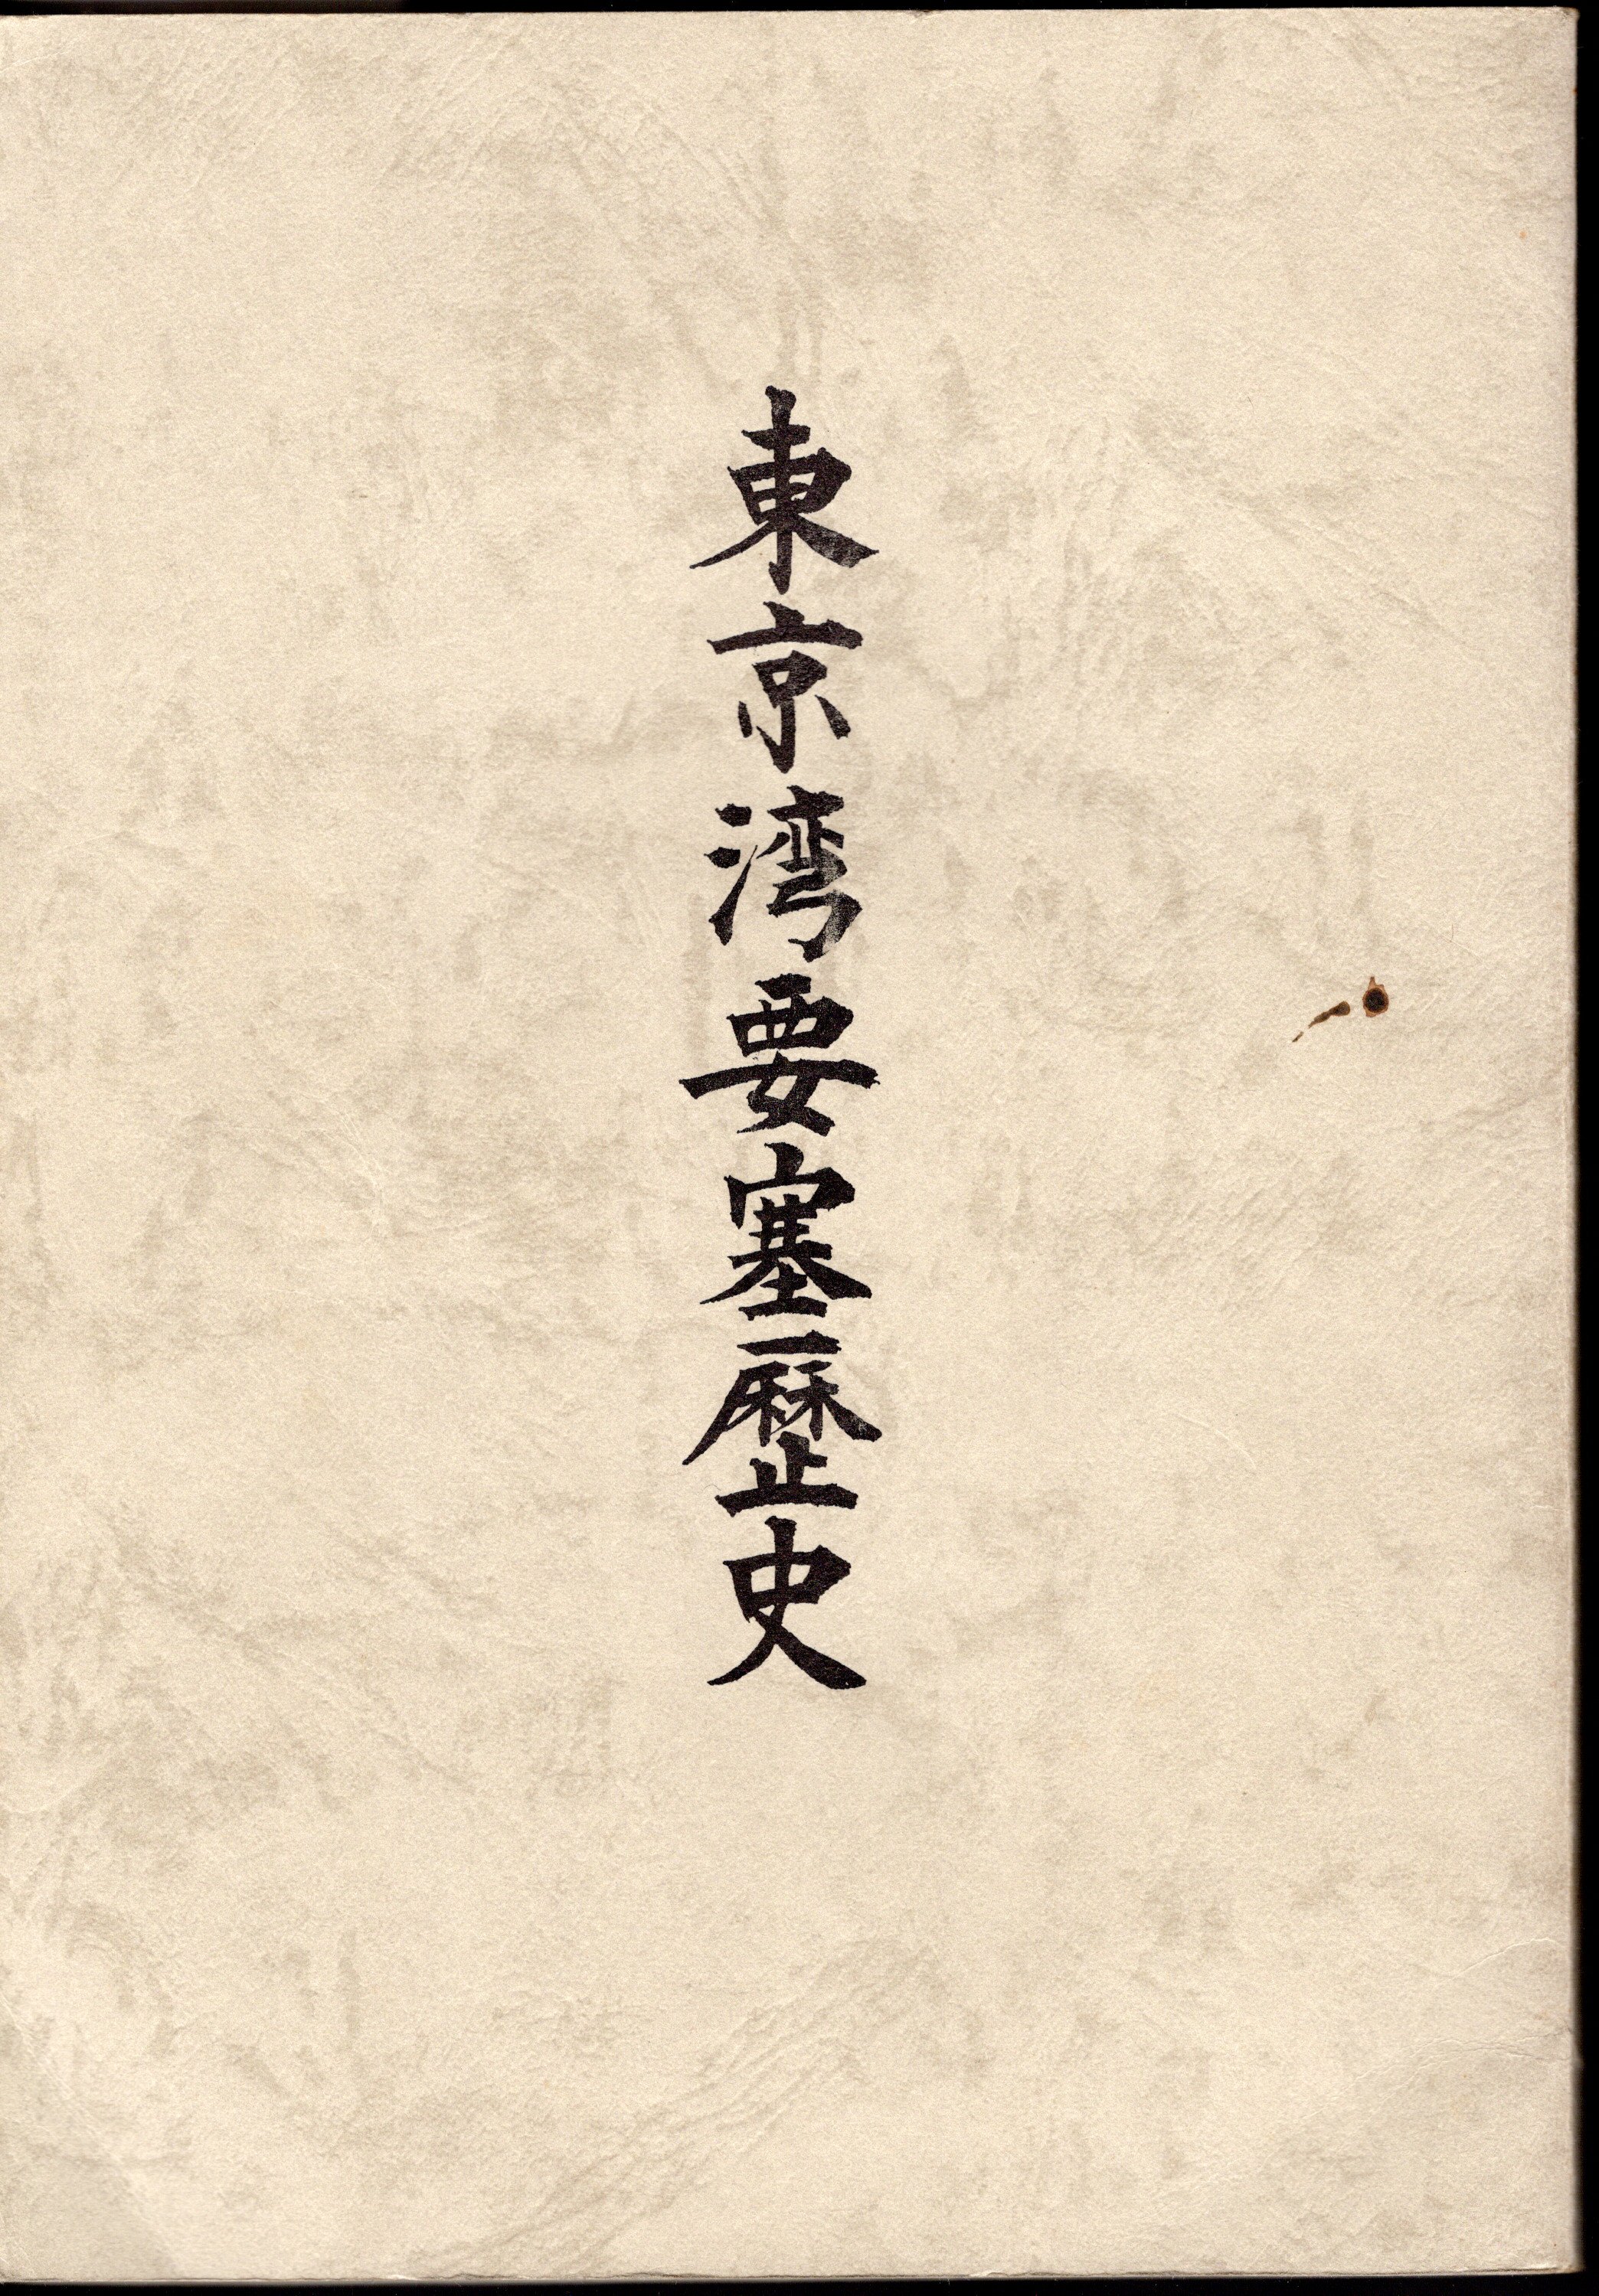 東京湾要塞歴史